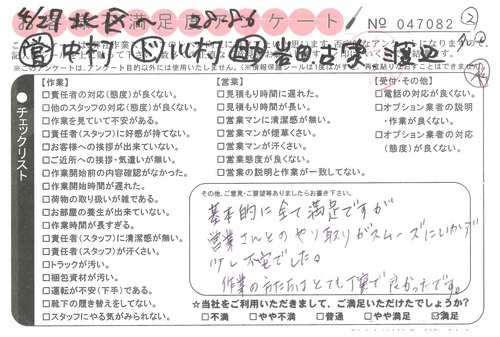 8/27 北区〜
お客様満足度アンケート
№ 047082 ②
㊞営 中村 ド 川村 助 岩田 古賀 渡辺
※このアンケートは、アンケート目的以外には使用いたしません。
チェックリスト
【作業】
□責任者の対応（態度）が良くない。
□他のスタッフの対応（態度）が良くない。
□作業を見ていて不安がある。
□責任者（スタッフ）に好感が持てない。
□お客様への挨拶が出来ていない。
□ご近所への挨拶・気遣いが無い。
□作業開始前の内容確認がなかった。
□作業開始時間が遅れた。
□荷物の取り扱いが雑である。
□お部屋の養生が出来ていない。
□作業時間が長すぎる。
□責任者（スタッフ）に清潔感が無い。
□責任者（スタッフ）が汗くさい。
□トラックが汚い。
□梱包資材が汚い。
□運転が不安（下手）である。
□靴下の履き替えをしてない。
□スタッフにやる気がみられない。
【営業】
□見積もり時間に遅れた。
□見積もり時間が長い。
□営業マンに清潔感が無い。
□営業マンが煙草くさい。
□営業マンが汗くさい。
□営業態度が良くない。
□営業の説明と作業が一致してない。
【受付・その他】
□電話の対応が良くない。
□オプション業者の説明
・作業が良くない。
□オプション業者の対応
（態度）が良くない。
その他、ご意見・ご要望等ありましたらお書き下さい。
基本的に全て満足ですが
営業さんとのやり取りがスムーズにいかず
少し不安でした。
作業の方たちはとても丁寧で良かったです。
★当社をご利用いただきまして、ご満足いただけたでしょうか？
□不満 □やや不満 □普通 □やや満足 ☑満足